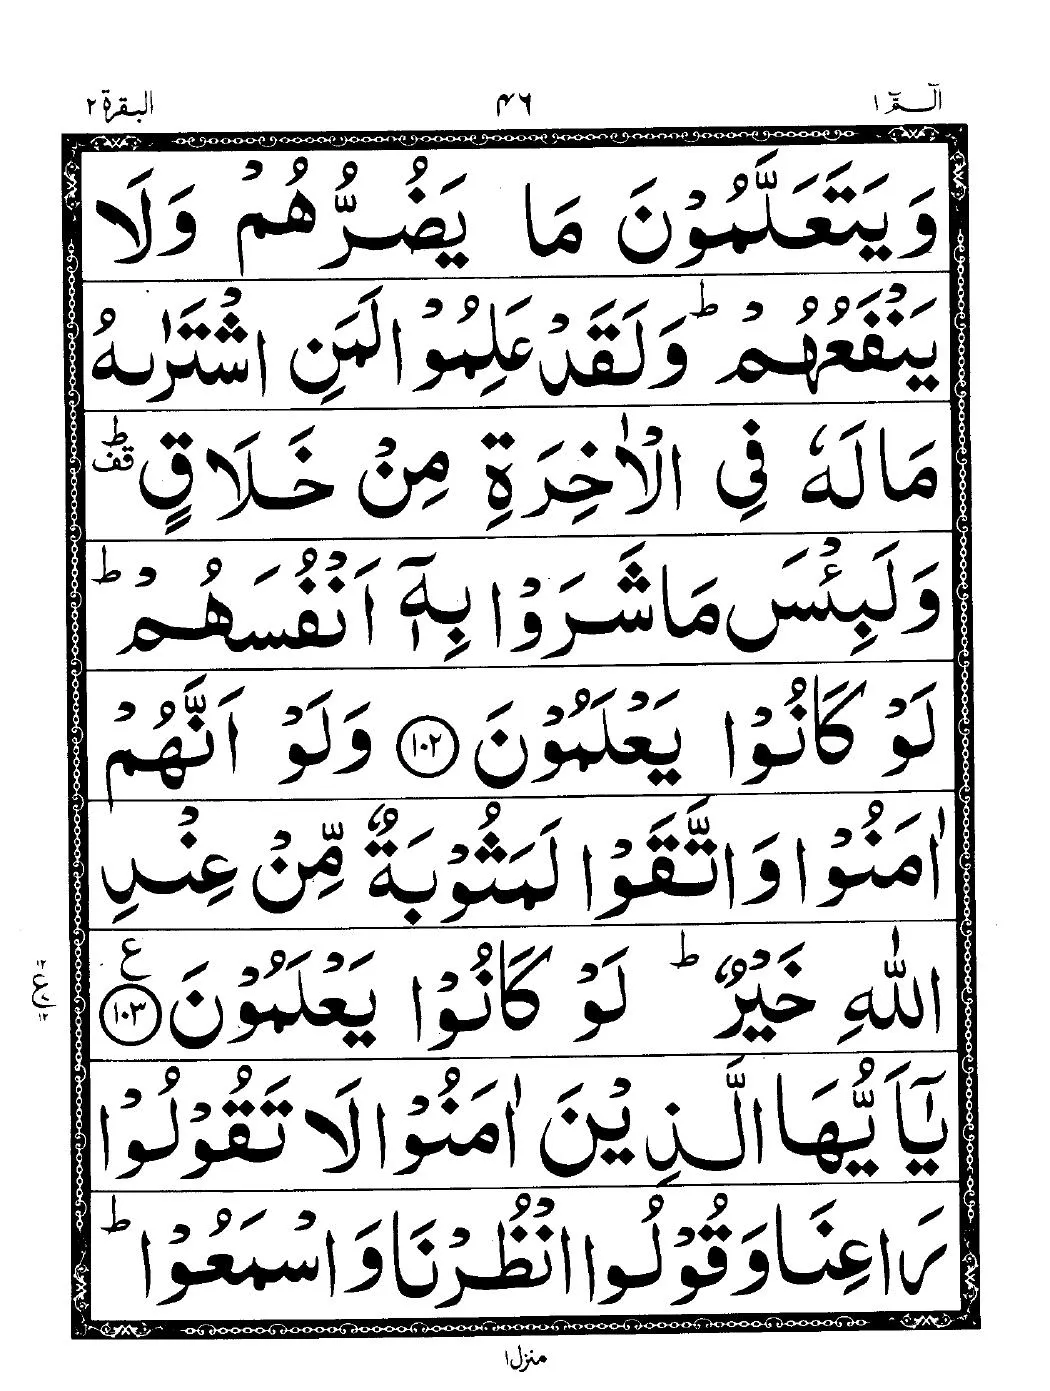 الٓمّٓ ١ ٤٦ البقرة ٢
وَيَتَعَلَّمُوْنَ مَا يَضُرُّهُمْ وَلَا
يَنْفَعُهُمْ ؕ وَلَقَدْ عَلِمُوْا لَمَنِ اشْتَرٰىهُ
مَا لَهٗ فِي الْاٰخِرَةِ مِنْ خَلَاقٍ ؕ قف
وَلَبِئْسَ مَا شَرَوْا بِهٖۤ اَنْفُسَهُمْ ؕ
لَوْ كَانُوْا يَعْلَمُوْنَ ١٠٢ وَلَوْ اَنَّهُمْ
اٰمَنُوْا وَاتَّقَوْا لَمَثُوْبَةٌ مِّنْ عِنْدِ
اللّٰهِ خَيْرٌ ؕ لَوْ كَانُوْا يَعْلَمُوْنَ ١٠٣ ع
يٰۤاَيُّهَا الَّذِيْنَ اٰمَنُوْا لَا تَقُوْلُوْا
رَاعِنَا وَقُوْلُوا انْظُرْنَا وَاسْمَعُوْا ؕ
منزل ١